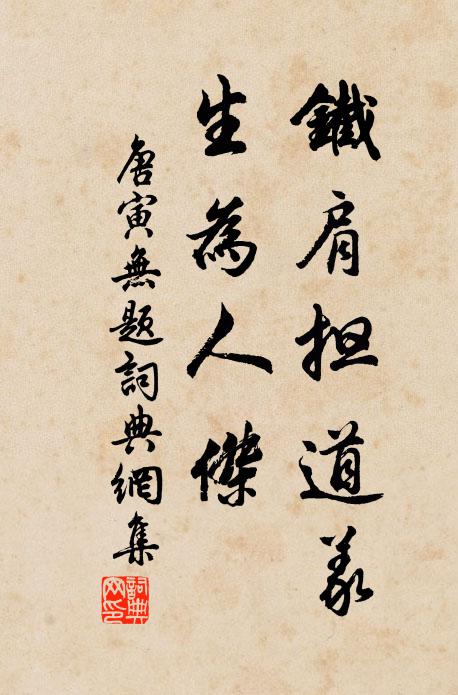 鐵肩担道義
生為人傑
唐寅無題詞典網集
詞典網印